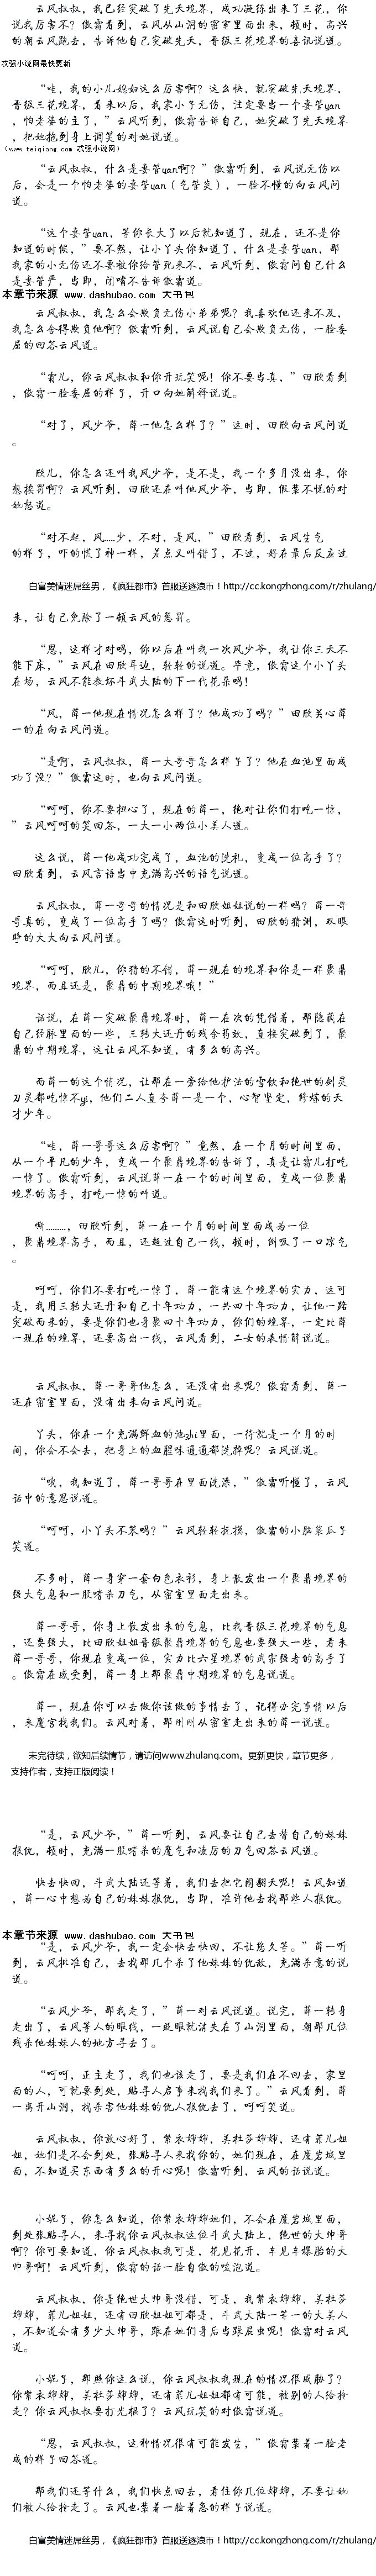 云风叔叔，我已经突破了先天境界，成功凝练出来了三花，你
说我厉害不？傲霜看到，云风从山洞的密室里面出来，顿时，高兴
的朝云风跑去，告诉他自己突破先天，晋级三花境界的喜讯说道。
忒强小说网最快更新
“哇，我的小儿媳如这么厉害啊？这么快，就突破先天境界，
晋级三花境界，看来以后，我家小子无伤，注定要当一个妻管yan，
怕老婆的主了，”云风听到，傲霜告诉自己，她突破了先天境界
，把她抱到身上调笑的对她说道。
（www.teiqiang.com 忒强小说网）
“云风叔叔，什么是妻管yan啊？”傲霜听到，云风说无伤以
后，会是一个怕老婆的妻管yan（气管炎），一脸不懂的向云风问
道。
“这个妻管yan，等你长大了以后就知道了，现在，还不是你
知道的时候，”要不然，让小丫头你知道了，什么是妻管yan，那
我家的小无伤还不要被你给管死来不，云风听到，傲霜问自己什么
是妻管严，当即，闭嘴不告诉傲霜道。
本章节来源 www.dashubao.com 大书包
云风叔叔，我怎么会欺负无伤小弟弟呢？我喜欢他还来不及，
我怎么舍得欺负他啊？傲霜听到，云风说自己会欺负无伤，一脸委
屈的回答云风道。
“霜儿，你云风叔叔和你开玩笑呢！你不要当真，”田欣看到
，傲霜一脸委屈的样子，开口向她解释说道。
“对了，风少爷，萧一他怎么样了？”这时，田欣向云风问道
。
欣儿，你怎么还叫我风少爷，是不是，我一个多月没出来，你
想挨罚啊？云风听到，田欣还在叫他风少爷，当即，假装不悦的对
她怒道。
“对不起，风……少，不对，是风，”田欣看到，云风生气
的样子，吓的慌了神一样，差点又叫错了，不过，好在最后反应过
白富美情迷屌丝男，《疯狂都市》首服送逐浪币！http://cc.kongzhong.com/r/zhulang/
来，让自己免除了一顿云风的惩罚。
“恩，这样才对吗，你以后在叫我一次风少爷，我让你三天不
能下床，”云风在田欣耳边，轻轻的说道。毕竟，傲霜这个小丫头
在场，云风不能教坏斗武大陆的下一代花朵吗！
“风，萧一他现在情况怎么样了？他成功了吗？”田欣关心萧
一的在向云风问道。
“是啊，云风叔叔，萧一大哥哥怎么样子了？他在血池里面成
功了没？”傲霜这时，也向云风问道。
“呵呵，你不要担心了，现在的萧一，绝对让你们打吃一惊，
”云风呵呵的笑回答，一大一小两位小美人道。
这么说，萧一他成功完成了，血池的洗礼，变成一位高手了？
田欣看到，云风言语当中充满高兴的语气说道。
云风叔叔，萧一哥哥的情况是和田欣姐姐说的一样吗？萧一哥
哥真的，变成了一位高手了吗？傲霜这时听到，田欣的猜测，双眼
睁的大大向云风问道。
“呵呵，欣儿，你猜的不错，萧一现在的境界和你是一样聚鼎
境界，而且还是，聚鼎的中期境界哦！”
话说，在萧一突破聚鼎境界时，萧一在次的凭借着，那隐藏在
自己经脉里面的一些，三转大还丹的残余药效，直接突破到了，聚
鼎的中期境界，这让云风不知道，有多么的高兴。
而萧一的这个情况，让那在一旁给他护法的雪饮和绝世的剑灵
刀灵都吃惊不yi，他们二人直夸萧一是一个，心智坚定，修炼的天
才少年。
“哇，萧一哥哥这么厉害啊？”竟然，在一个月的时间里面，
从一个平凡的少年，变成一个聚鼎境界的告诉了，真是让霜儿打吃
一惊了。傲霜听到，云风说萧一在一个的时间里面，变成一位聚鼎
境界的高手，打吃一惊的叫道。
嘶………，田欣听到，萧一在一个月的时间里面成为一位
，聚鼎境界高手，而且，还超过自己一线，顿时，倒吸了一口凉气
。
呵呵，你们不要打吃一惊了，萧一能有这个境界的实力，这可
是，我用三转大还丹和自己十年功力，一共四十年功力，让他一路
突破而来的，要是你们也身聚四十年功力，你们的境界，一定比萧
一现在的境界，还要高出一线，云风看到，二女的表情解说道。
云风叔叔，萧一哥哥他怎么，还没有出来呢？傲霜看到，萧一
还在密室里面，没有出来向云风问道。
丫头，你在一个充满鲜血的池zhi里面，一待就是一个月的时
间，你会不会去，把身上的血腥味通通都洗掉呢？云风说道。
“哦，我知道了，萧一哥哥在里面洗涤，”傲霜听懂了，云风
话中的意思说道。
“呵呵，小丫头不笨吗？”云风轻轻抚摸，傲霜的小脑袋瓜子
笑道。
不多时，萧一身穿一套白色衣衫，身上散发出一个聚鼎境界的
强大气息和一股嗜杀刀气，从密室里面走出来。
萧一哥哥，你身上散发出来的气息，比我晋级三花境界的气息
，还要强大，比田欣姐姐晋级聚鼎境界的气息也要强大一些，看来
萧一哥哥，你现在变成一位，实力比六星境界的武宗强者的高手了
了。傲霜在感受到，萧一身上那聚鼎中期境界的气息说道。
萧一，现在你可以去做你该做的事情去了，记得办完事情以后
，来魔宫找我们。云风对着，那刚刚从密室走出来的萧一说道。
未完待续，欲知后续情节，请访问www.zhulang.com。更新更快，章节更多，
支持作者，支持正版阅读！
“是，云风少爷，”萧一听到，云风要让自己去替自己的妹妹
报仇，顿时，充满一股嗜杀的魔气和凌厉的刀气回答云风道。
快去快回，斗武大陆还等着，我们去把它闹翻天呢！云风知道
，萧一心中想为自己的妹妹报仇，当即，准许他去找那些人报仇。
本章节来源 www.dashubao.com 大书包
“是，云风少爷，我一定会快去快回，不让您久等。”萧一听
到，云风批准自己，去找那几个杀了他妹妹的仇敌，充满杀意的说
道。
“云风少爷，那我走了，”萧一对云风说道。说完，萧一转身
走出了，云风等人的眼线，一眨眼就消失在了山洞里面，朝那几位
残杀他妹妹人的地方寻去了。
“呵呵，正主走了，我们也该走了，要是我们在不回去，家里
面的人，可就要到处，贴寻人启事来找我们来了。”云风看到，萧
一离开山洞，找杀害他妹妹的仇人报仇去了，呵呵笑道。
云风叔叔，你放心好了，紫衣婶婶，美杜莎婶婶，还有菲儿姐
姐，她们是不会到处，张贴寻人来找你的，她们现在，在魔岩城里
面，不知道买东西有多么的开心呢！傲霜听到，云风的话说道。
小妮子，你怎么知道，你紫衣婶婶她们，不会在魔岩城里面，
到处张贴寻人，来寻找你云风叔叔这位斗武大陆上，绝世的大帅哥
啊？你可要知道，你云风叔叔我可是，花见花开，车见车爆胎的大
帅哥啊！云风听到，傲霜的话一脸自傲的嘚泡道。
云风叔叔，你是绝世大帅哥没错，可是，我紫衣婶婶，美杜莎
婶婶，菲儿姐姐，还有田欣姐姐可都是，斗武大陆一等一的大美人
，不知道会有多少大帅哥，跟在她们身后当跟屁虫呢！傲霜对云风
道。
小妮子，那照你这么说，你云风叔叔我现在的情况很威胁了？
你紫衣婶婶，美杜莎婶婶，还有菲儿姐姐都有可能，被别的人给拴
走？你云风叔叔要打光棍了？云风玩笑的对傲霜说道。
“恩，云风叔叔，这种情况很有可能发生，”傲霜装着一脸老
成的样子回答道。
那我们还等什么，我们快点回去，看住你几位婶婶，不要让她
们被人给拴走了。云风也装着一脸着急的样子说道。
白富美情迷屌丝男，《疯狂都市》首服送逐浪币！http://cc.kongzhong.com/r/zhulang/